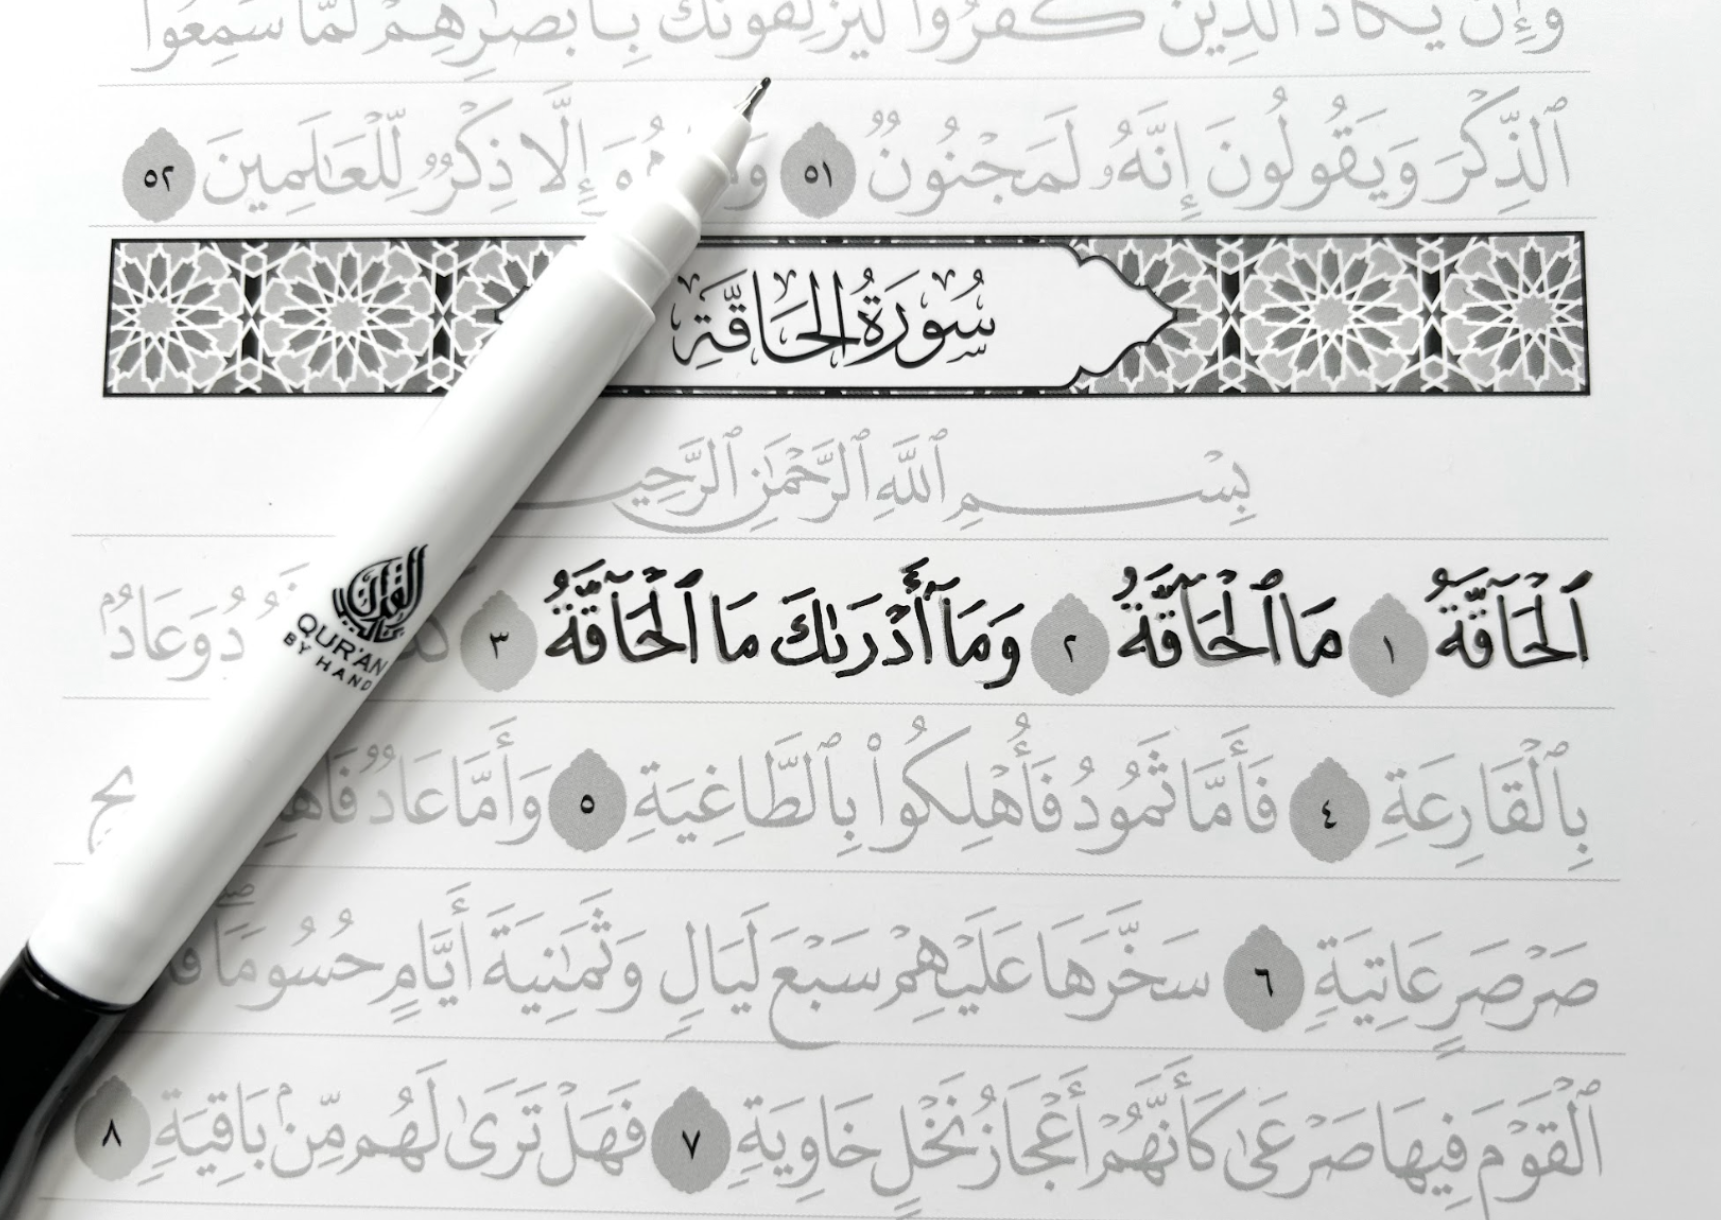 وَإِن يَكَادُ ٱلَّذِينَ كَفَرُوا۟ لَيُزْلِقُونَكَ بِأَبْصَٰرِهِمْ لَمَّا سَمِعُوا۟
ٱلذِّكْرَ وَيَقُولُونَ إِنَّهُۥ لَمَجْنُونٌ ٥١ هُوَ إِلَّا ذِكْرٌ لِّلْعَٰلَمِينَ ٥٢
سُورَةُ الحَاقَّةِ
بِسْمِ ٱللَّهِ ٱلرَّحْمَٰنِ
ٱلْحَآقَّةُ ١ مَا ٱلْحَآقَّةُ ٢ وَمَآ أَدْرَىٰكَ مَا ٱلْحَآقَّةُ ٣ وَعَادٌۢ
بِٱلْقَارِعَةِ ٤ فَأَمَّا ثَمُودُ فَأُهْلِكُوا۟ بِٱلطَّاغِيَةِ ٥ وَأَمَّا عَادٌ
صَرْصَرٍ عَاتِيَةٍ ٦ سَخَّرَهَا عَلَيْهِمْ سَبْعَ لَيَالٍ وَثَمَٰنِيَةَ أَيَّامٍ حُسُومًا
ٱلْقَوْمَ فِيهَا صَرْعَىٰ كَأَنَّهُمْ أَعْجَازُ نَخْلٍ خَاوِيَةٍ ٧ فَهَلْ تَرَىٰ لَهُم مِّنۢ بَاقِيَةٍ ٨
القرآن باليد
QUR'AN
BY HAND